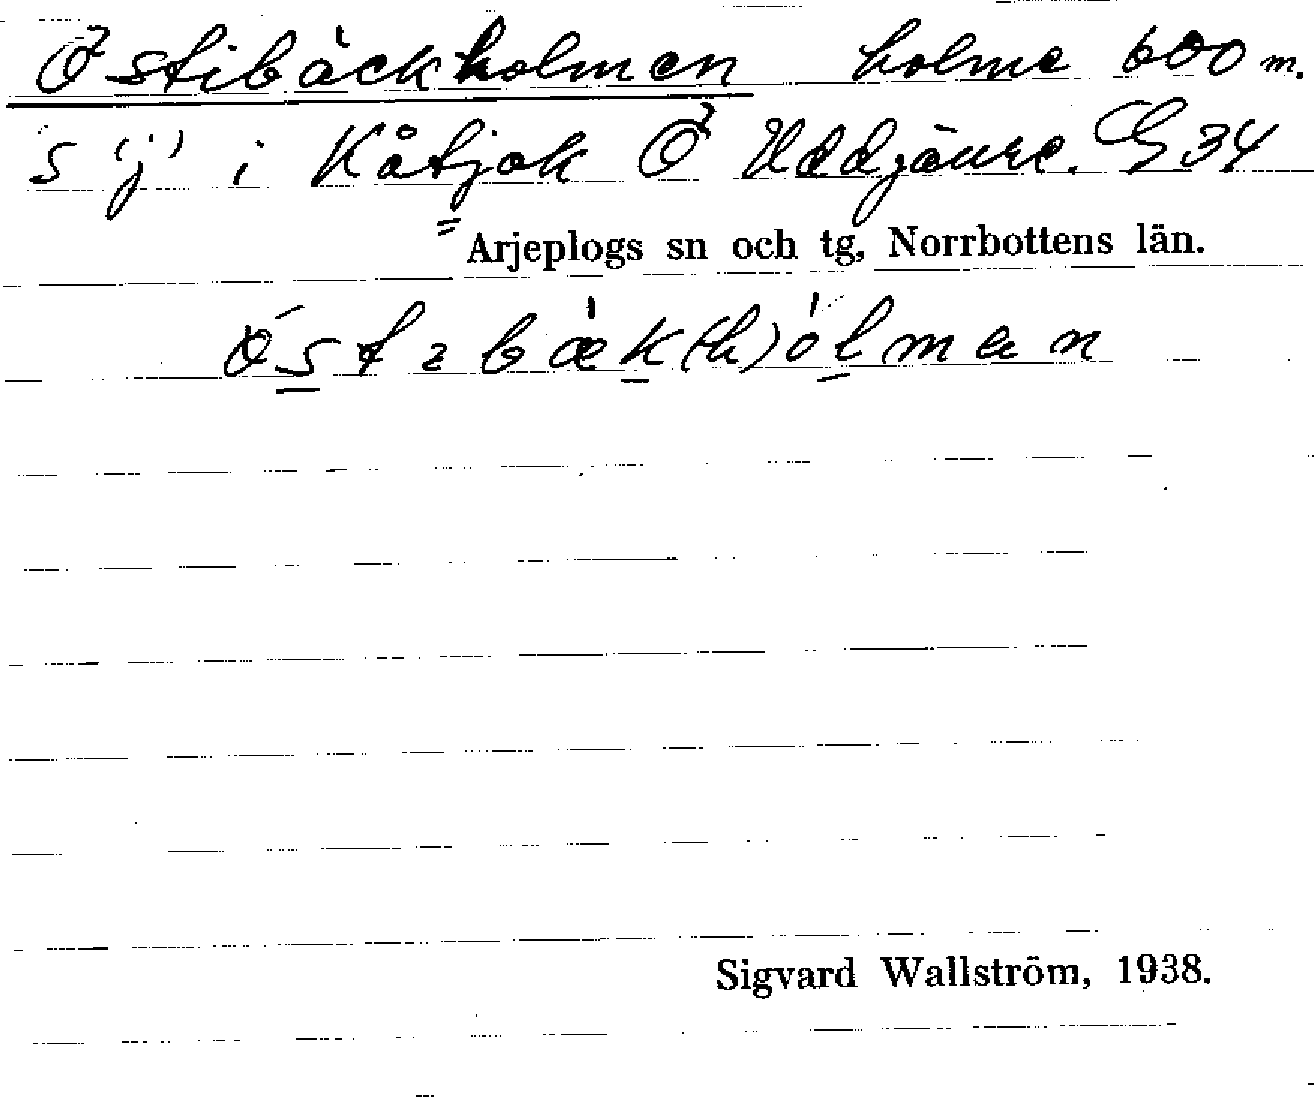 Östibäckholmen holme 600 m.
S 'j' i Kåtjok Ö Uddjaure. G 34
Arjeplogs sn och tg, Norrbottens län.
Sigvard Wallström, 1938.